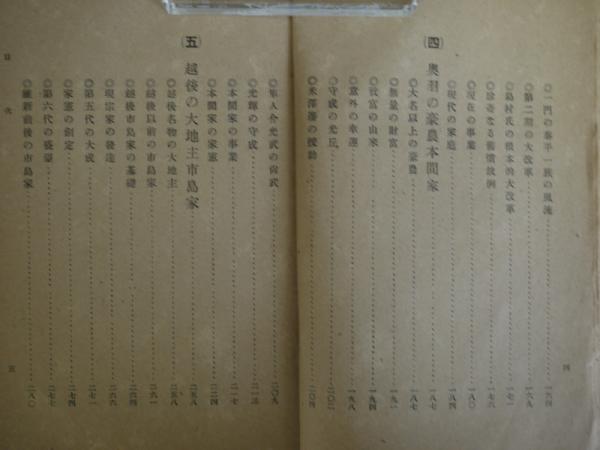 ◎一門の泰平一族の風流……一六四
◎第二期の大改革……一六七
◎島村氏の根本的大改革……一六九
◎珍奇なる舊慣故例……一七八
◎現在の事業……一八一
◎現代の家庭……一八四
(四) 奧羽の豪農本間家……一八七
◎大名以上の豪農……一八七
◎無量の財富……一九一
◎致富の山米……一九四
◎意外の幸運……一九八
◎守成の光丘……二〇二
◎米澤藩の援助……二〇四
四
◎隼人介光武の尙武……二〇九
◎光暉の守成……二一三
◎本間家の事業……二一七
◎本間家の家憲……二二四
(五) 越後の大地主市島家……二五八
◎越後名物の大地主……二五八
◎越後以前の市島家……二六一
◎越後市島家の基礎……二六四
◎現宗家の發達……二六六
◎第五代の大成……二七一
◎家憲の創定……二七四
◎第六代の盛豪……二七七
◎維新前後の市島家……二八〇
目次
五